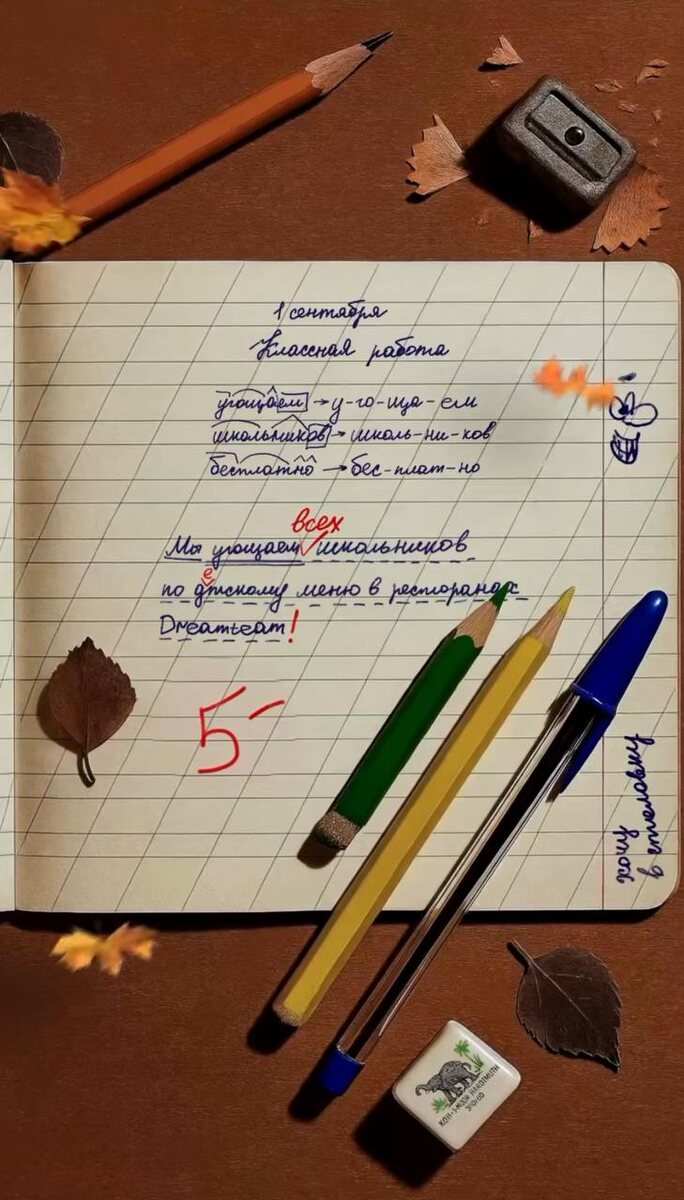 1 сентября
Классная работа
угощаем → у-го-ща-ем
школьников → школь-ни-ков
бесплатно → бес-плат-но
всех
Мы угощаем школьников
е
по дтскому меню в ресторанах
Dreamteam!
5-
хочу
в столовку
KOH-I-NOOR HARDTMUTH
300/60